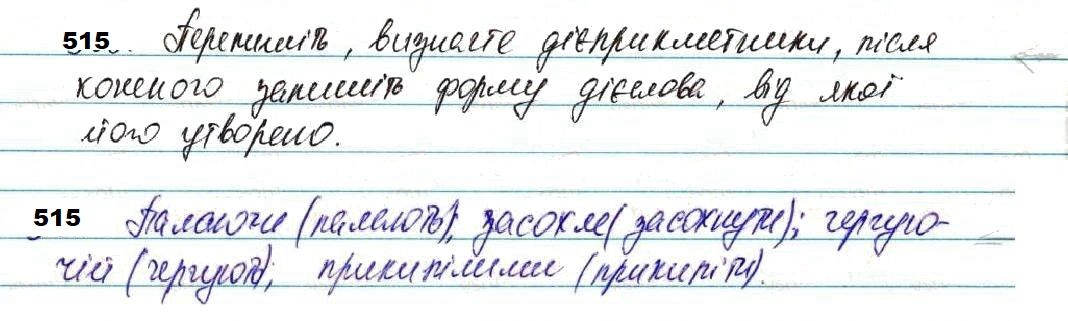 515 Перепишіть, визначте дієприкметники, після
кожного запишіть форму дієслова, від якої
його утворено.
515 Палаюче (палають); засохле (засохнути); чергую-
чій (чергують); прикипілими (прикипіти).